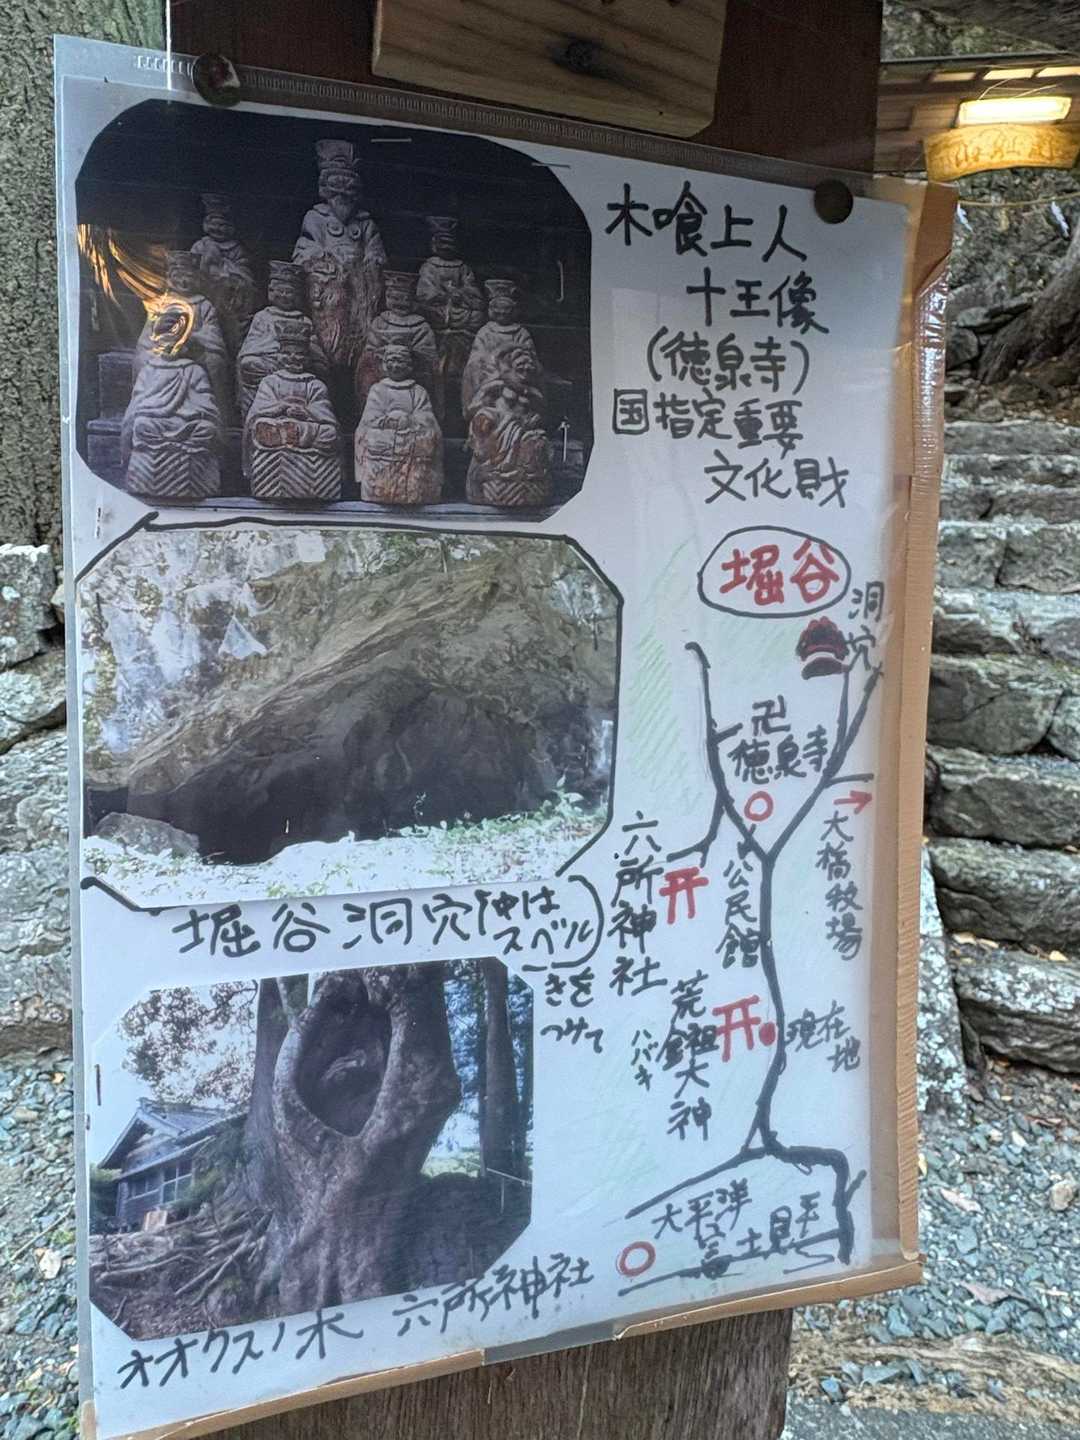 木喰上人
十王像
(徳泉寺)
国指定重要
文化財
堀谷
洞穴
卍
徳泉寺
大橋牧場
公民館
六所神社
現在地
荒鎺大神
ハバキ
堀谷洞穴(中は
スベル)
きを
つけて
太平洋
富士見
オオクスノ木 六所神社